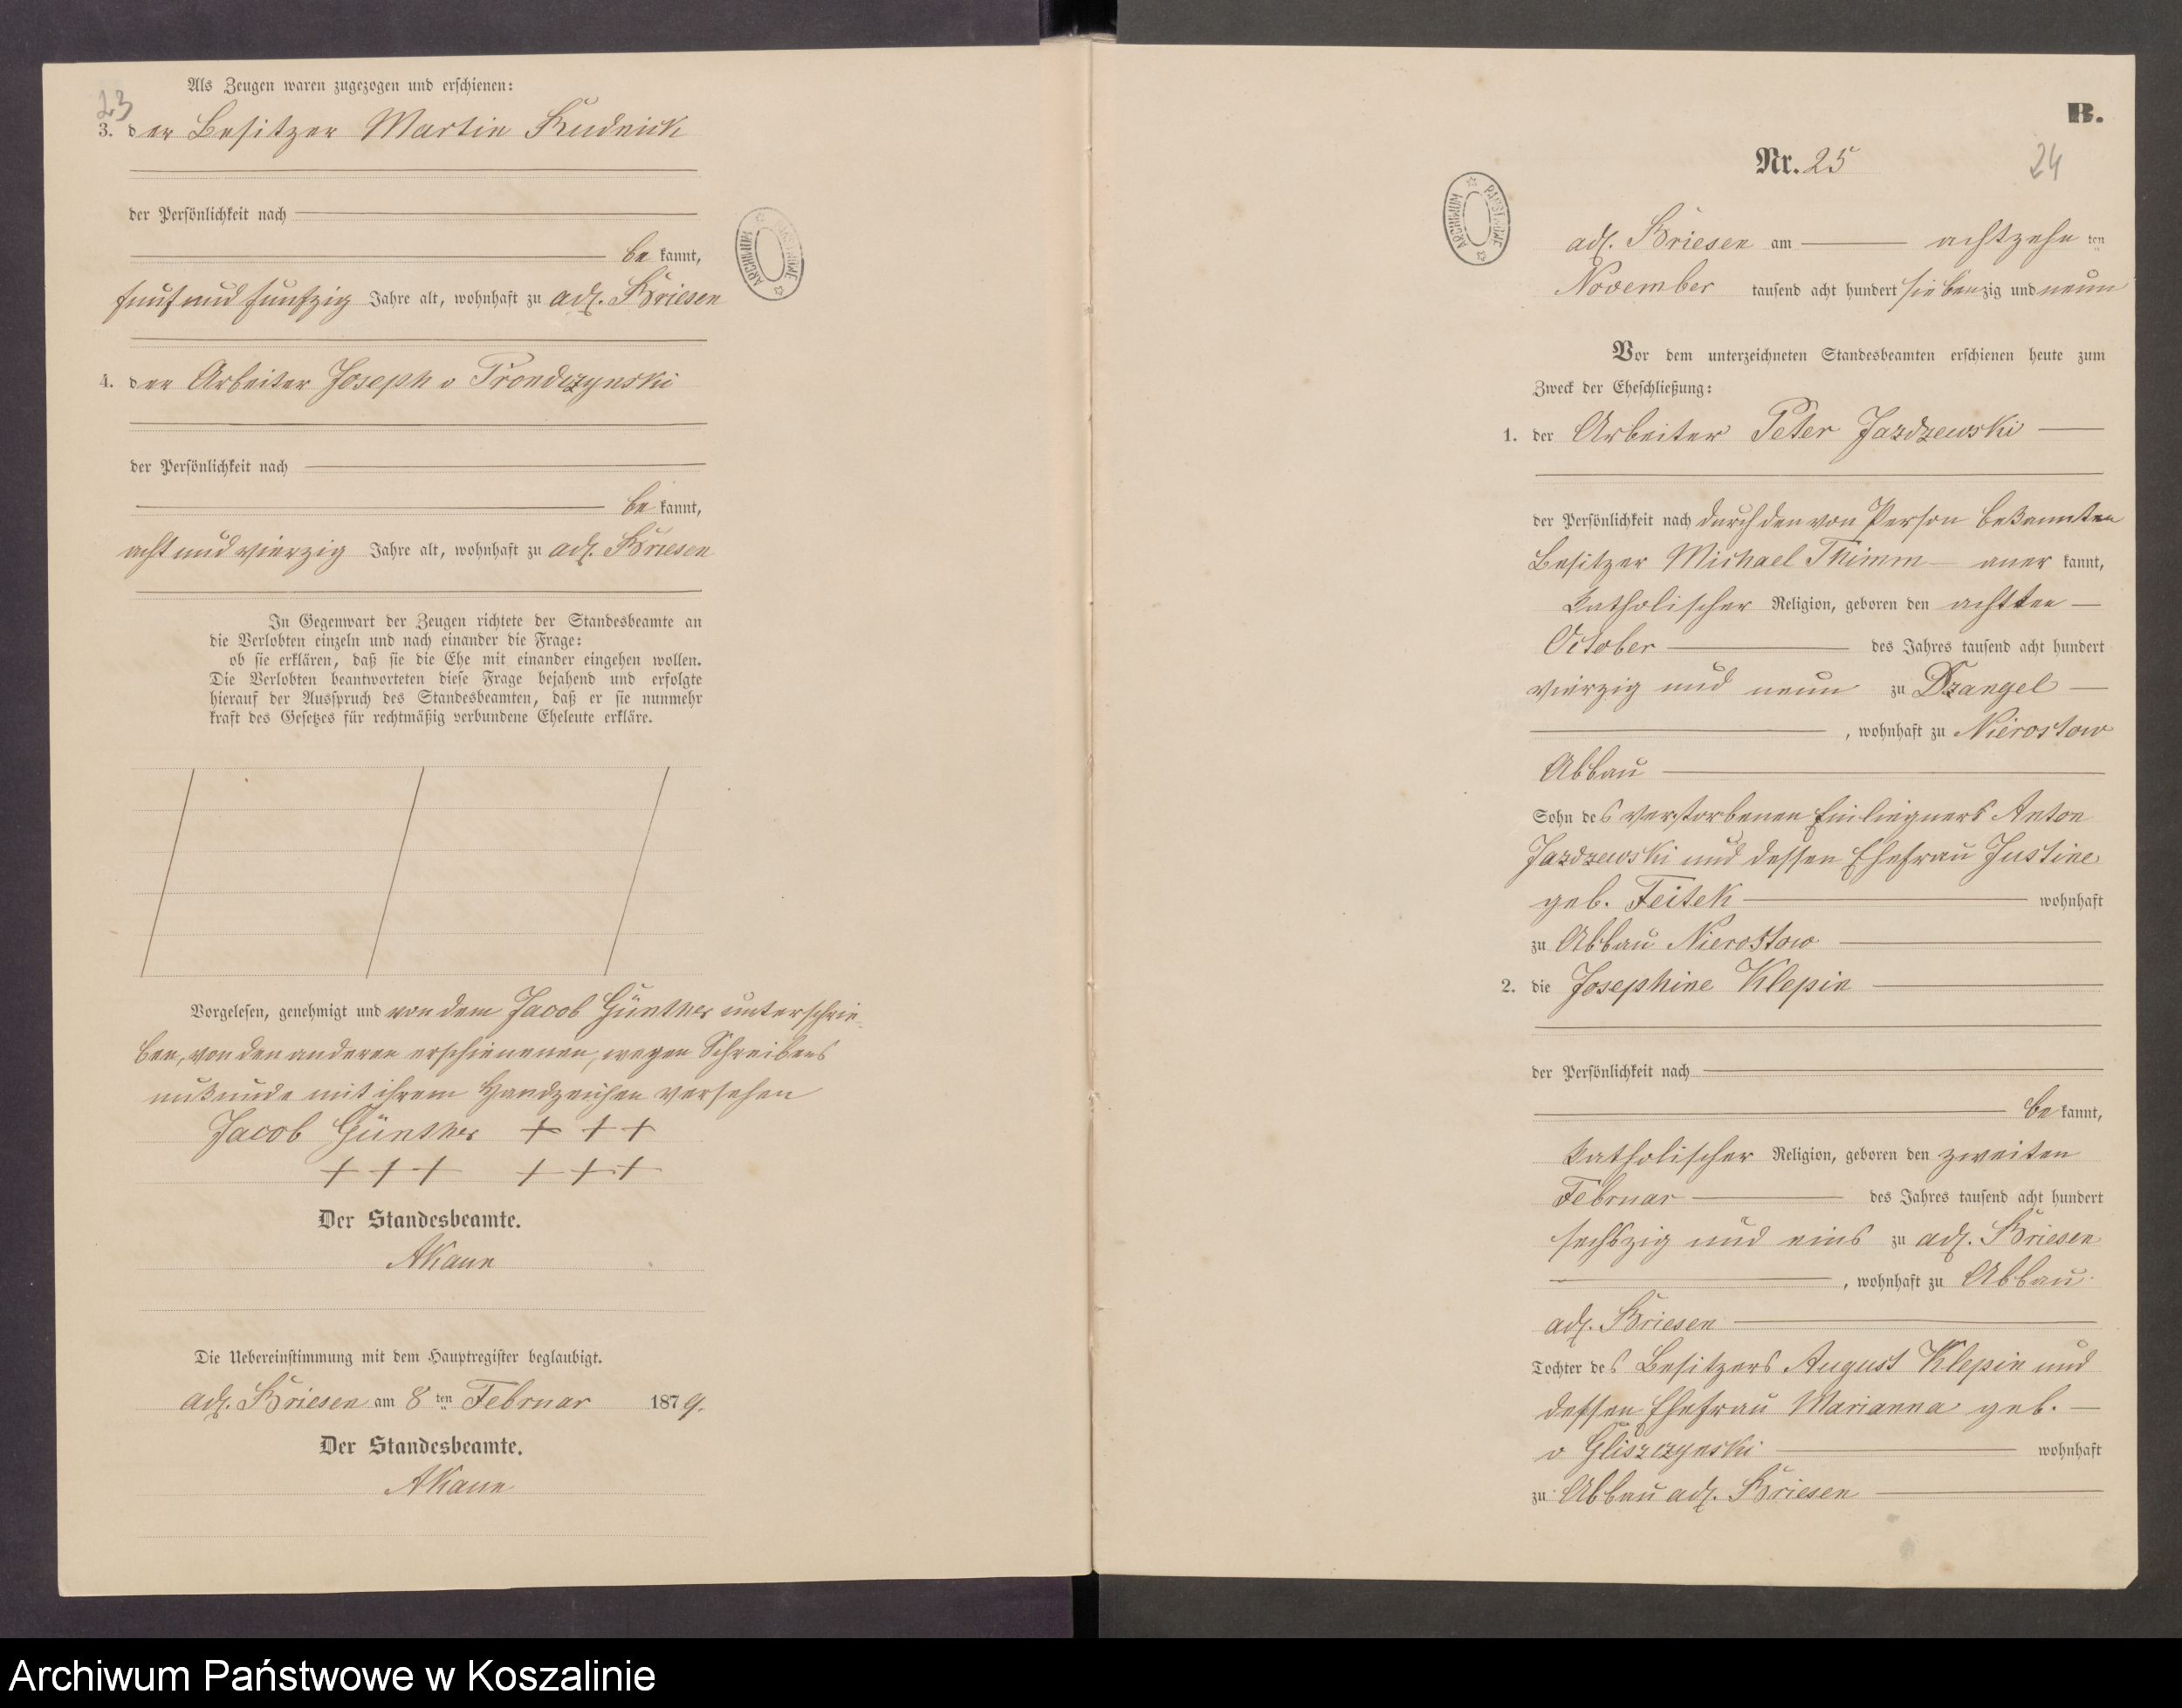 23
Als Zeugen waren zugezogen und erschienen:
3. der Besitzer Martin Rudnick
der Persönlichkeit nach
be kannt,
fünf und fünfzig Jahre alt, wohnhaft zu adl. Briesen
4. der Arbeiter Joseph v Trondczynski
der Persönlichkeit nach
be kannt,
acht und vierzig Jahre alt, wohnhaft zu adl. Briesen
In Gegenwart der Zeugen richtete der Standesbeamte an
die Verlobten einzeln und nach einander die Frage:
ob sie erklären, daß sie die Ehe mit einander eingehen wollen.
Die Verlobten beantworteten diese Frage bejahend und erfolgte
hierauf der Ausspruch des Standesbeamten, daß er sie nunmehr
kraft des Gesetzes für rechtmäßig verbundene Eheleute erkläre.
Vorgelesen, genehmigt und von dem Jacob Günther unterschrie-
ben, von den anderen erschienenen, wegen Schreibens
unkunde mit ihrem Handzeichen versehen
Jacob Günther + + +
+ + + + + +
Der Standesbeamte.
AKaun
Die Uebereinstimmung mit dem Hauptregister beglaubigt.
adl. Briesen am 8 ten Februar 1879.
Der Standesbeamte.
AKaun
ARCHIWUM PAŃSTWOWE
B.
Nr. 25
24
ARCHIWUM PAŃSTWOWE
adl. Briesen am achtzehn ten
November tausend acht hundert siebenzig und neun
Vor dem unterzeichneten Standesbeamten erschienen heute zum
Zweck der Eheschließung:
1. der Arbeiter Peter Jazdzewski
der Persönlichkeit nach durch den von Person bekannten
Besitzer Michael Thimm aner kannt,
katholischer Religion, geboren den achtten
October des Jahres tausend acht hundert
vierzig und neun zu Dzangel
, wohnhaft zu Nierostow
Abbau
Sohn des verstorbenen Einliegners Anton
Jazdzewski und dessen Ehefrau Justine
geb. Feitek wohnhaft
zu Abbau Nierostow
2. die Josephine Klepin
der Persönlichkeit nach
be kannt,
katholischer Religion, geboren den zweiten
Februar des Jahres tausend acht hundert
sechszig und eins zu adl. Briesen
, wohnhaft zu Abbau
adl. Briesen
Tochter des Besitzers August Klepin und
dessen Ehefrau Marianna geb.
v Gliszczynski wohnhaft
zu Abbau adl. Briesen
Archiwum Państwowe w Koszalinie